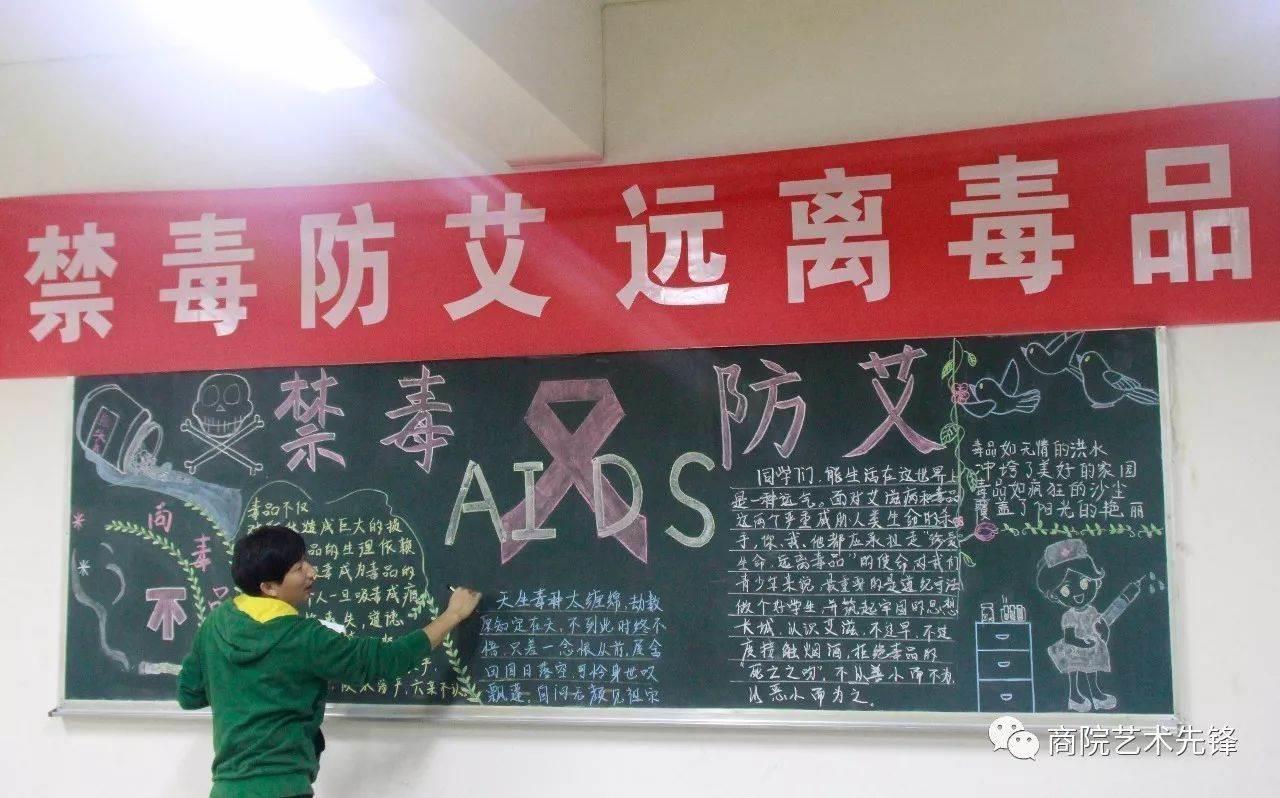 禁毒防艾远离毒品
禁毒
防艾
AIDS
向
毒
品
不
毒品不仅
造成巨大的
品的生理依赖
成为毒品的
一旦吸毒成
天生毒种太缠绵,劫数
在天,不到此时终不
悟,只差一念恨从前,
回国日落空,可怜身世叹
飘蓬,自问无颜见祖宗
同学们,能生活在这世界上
是一种运气。面对艾滋病和毒品
这两个严重威胁人类生命的杀
手,你、我、他都应承担起“珍爱
生命,远离毒品”的使命对我们
青少年来说,最重要的是遵纪守法
做个好学生,并筑起牢固的思想
长城,认识艾滋,不过早,不过
度接触烟酒,拒绝毒品的
“死亡之吻”,不从善小而不为,
从恶小而为之。
毒品如无情的洪水
冲垮了美好的家园
毒品如疯狂的沙尘
覆盖了阳光的艳丽
商院艺术先锋